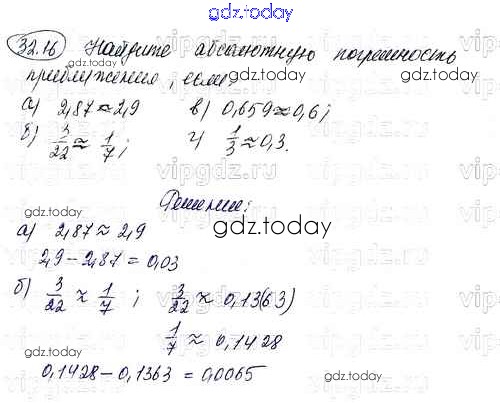 gdz.today
32.16 Найдите абсолютную погрешность
приближения, если:
а) 2,87≈2,9 в) 0,659≈0,6;
б) 3/22 ≈ 1/7; г) 1/3 ≈ 0,3.
Решение:
gdz.today
а) 2,87 ≈ 2,9
gdz.today
2,9 - 2,87 = 0,03
б) 3/22 ≈ 1/7 ; 3/22 ≈ 0,13(63)
1/7 ≈ 0,1428
gdz.today
0,1428 - 0,1363 = 0,0065
gdz.today